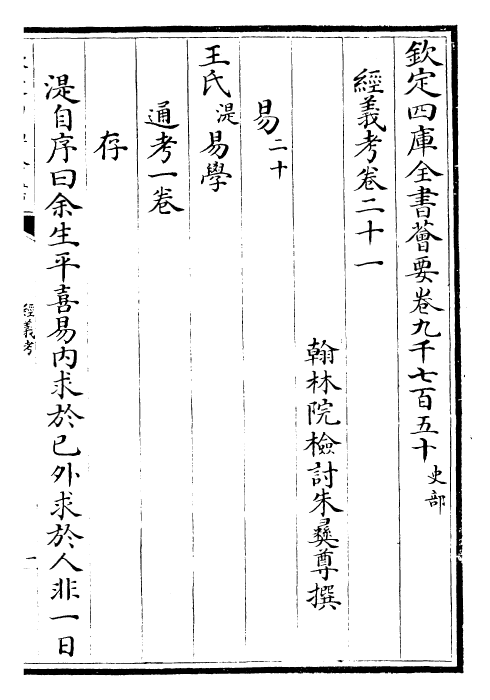 欽定四庫全書薈要卷九千七百五十 史部
經義考卷二十一
翰林院檢討朱彝尊撰
易二十
王氏湜易學
通考一卷
存
湜自序曰余生平喜易內求於已外求於人非一日
經義考
一